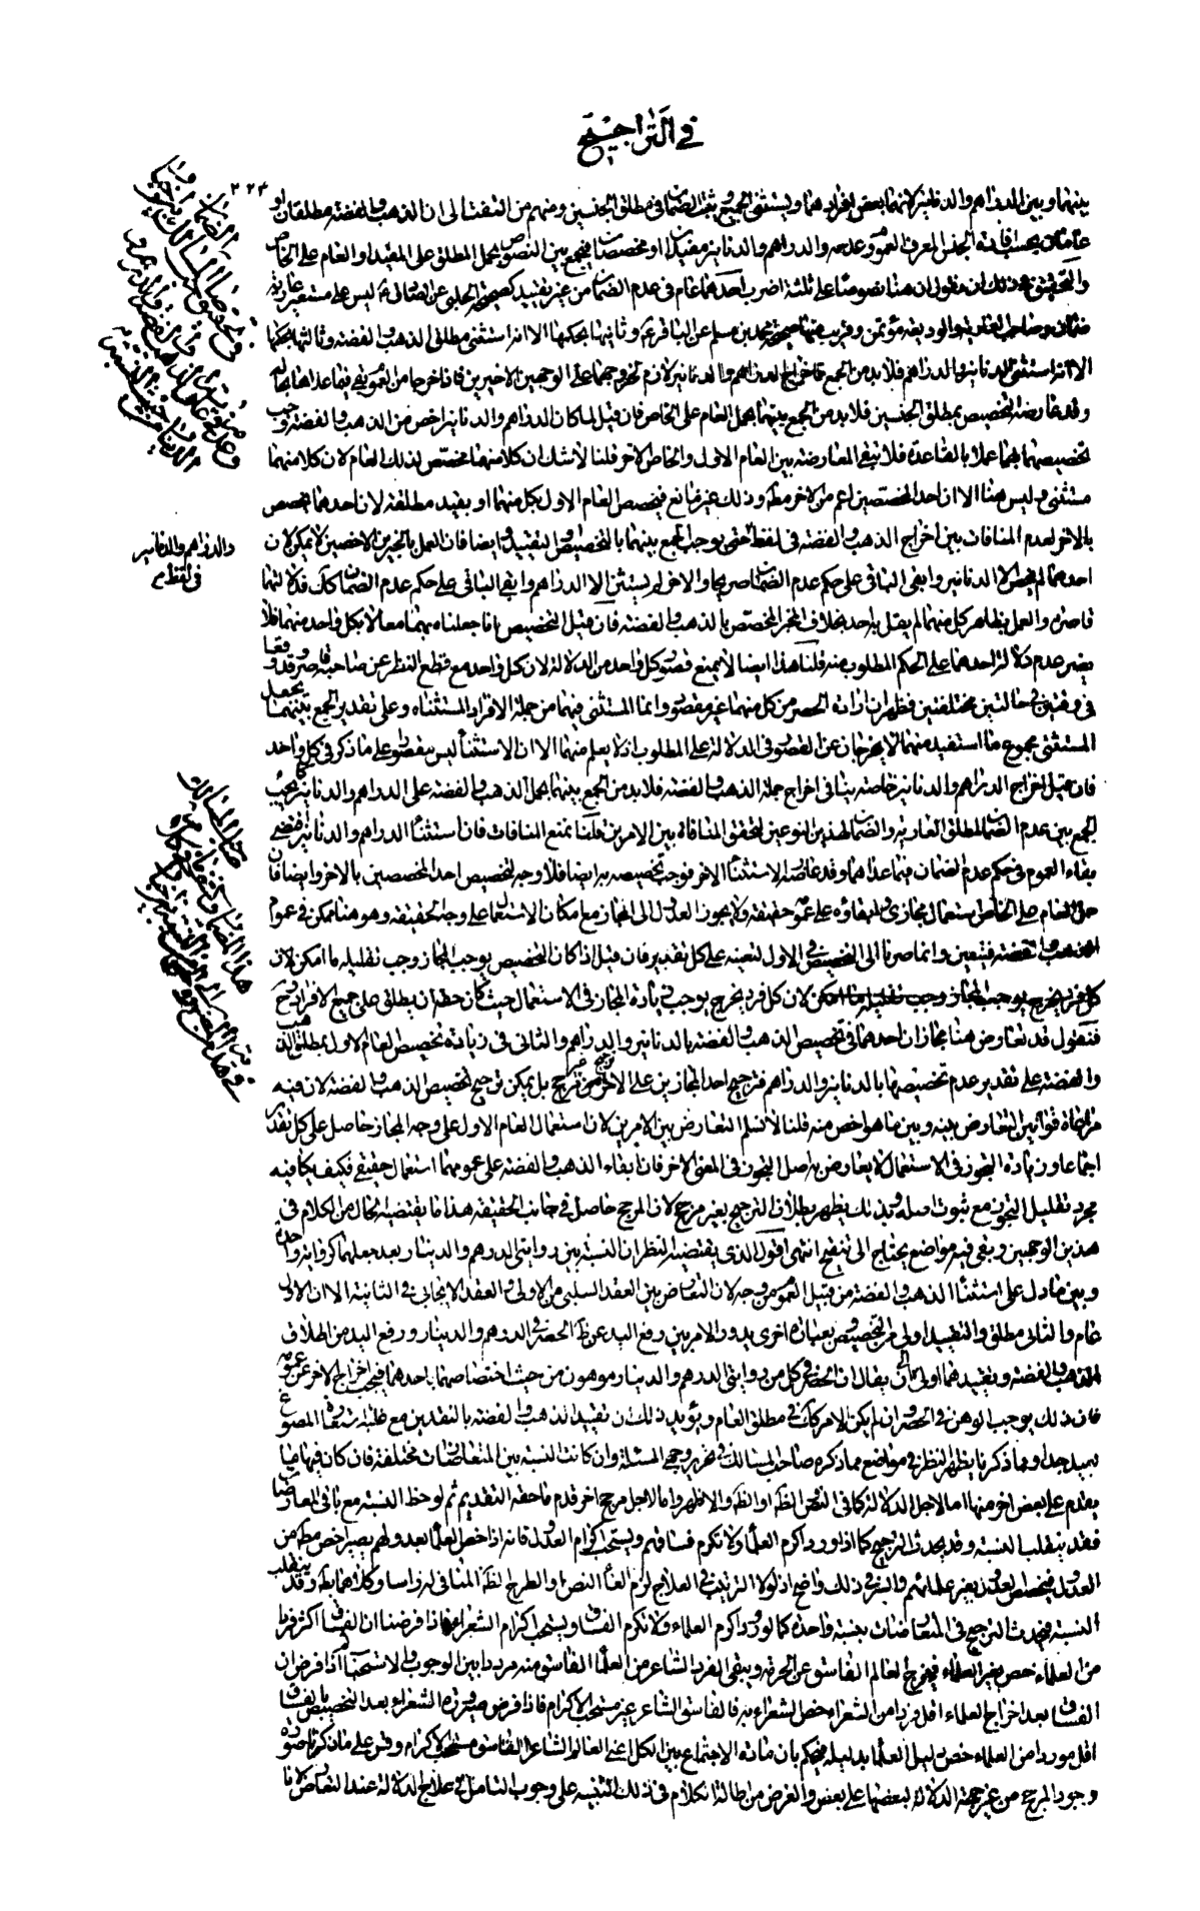 في التراجيح
٢٢٣
بينهما وبين الدراهم والدنانير لانهما بعض افرادهما ويستثنى الجميع ويثبت الضمان في مطلق الجنسين ومنهم من التفت الى ان الذهب والفضة مطلقان او
عامان بحسب افادة الجنس المعرف العموم وعدمه والدراهم والدنانير مقيدان او مخصصان فيجمع بين النصوص بحمل المطلق على المقيد او العام على الخاص
والتحقيق في ذلك ان نقول ان هنا نصوصا على ثلثة اضرب احدها عام في عدم الضمان من غير تقييد كصحيحة الحلبي عن الصادق ع ليس على مستعير عارية
ضمان وصاحب العارية والوديعة مؤتمن وقريب منها صحيحة محمد بن مسلم عن الباقر ع وثانيها بحكمها الا انه استثنى مطلق الذهب والفضة وثالثها بحكمها
الا انه استثنى الدنانير والدراهم فلا بد من الجمع فاخراج الدراهم والدنانير لازم لخروجهما على الوجهين الاخيرين فاذا خرجا من العموم بقي فيما عداهما بحاله
وقد عارضه التخصيص بمطلق الجنسين فلا بد من الجمع بينهما بحمل العام على الخاص فان قيل لما كان الدراهم والدنانير اخص من الذهب والفضة وجب
تخصيصهما بهما عملا بالقاعدة فلا تبقى المعارضة بين العام الاول والخاص الاخر قلنا لا شك ان كلا منهما مخصص لذلك العام لان كلا منهما
مستثنى وليس هنا الا ان احد المخصصين اعم من الاخر مط وذلك غير مانع فيخصص العام الاول بكل منهما او يقيد مطلقه لان احدهما يخصص
بالاخر لعدم المنافات بين اخراج الذهب والفضة في لفظ حتى يوجب الجمع بينهما بالتخصيص او التقييد وايضا فان العمل بالخبرين الاخصين لا يمكن لان
احدهما لم يخص الا الدنانير وابقى الباقي على حكم عدم الضمان صريحا والاخر لم يستثن الا الدراهم وابقى الباقي على حكم عدم الضمان كك فدلالتهما
قاصرة والعمل بظاهر كل منهما لم يقل به احد بخلاف الخبر المخصص بالذهب والفضة فان قيل التخصيص انما جعلناه بهما معا لا بكل واحد منهما فلا
يضر عدم دلالة احدهما على الحكم المطلوب منه قلنا هذا ايضا لا يمنع قصور كل واحد من الدلالة لان كل واحد مع قطع النظر عن صاحبه قاصر وقد وقعا
في وقتين في حالتين مختلفتين فظهر ان ارادة الحصر من كل منهما غير مقصود وانما المستثنى فيهما من جملة الافراد المستثناه وعلى تقدير الجمع بينهما بجعل
المستثنى مجموع ما استفيد منهما لا يخرجان عن القصور في الدلالة على المطلوب اذ لا يعلم منهما الا ان الاستثناء ليس مقصورا على ما ذكر في كل واحد
فان قيل اخراج الدراهم والدنانير خاصة ينافي اخراج جملة الذهب والفضة فلا بد من الجمع بينهما بحمل الذهب والفضة على الدراهم والدنانير كما يجب
الجمع بين عدم الضمان لمطلق العارية والضمان لهذين النوعين لتحقق المنافاة بين الامرين قلنا نمنع المنافات فان استثناء الدراهم والدنانير اقتضى
بقاء العموم في حكم عدم الضمان فيما عداهما وقد عارضه الاستثناء الاخر فوجب تخصيصه به ايضا فلا وجه لتخصيص احد المخصصين بالاخر وايضا فان
حمل العام على الخاص استعمال مجازي وابقاؤه على عمومه حقيقة ولا يجوز العدول الى المجاز مع امكان الاستعمال على وجه الحقيقة وهو هنا ممكن في عموم
الذهب والفضة فيتعين وانما صرنا الى التخصيص في الاول لتعينه على كل تقدير فان قيل اذا كان التخصيص يوجب المجاز وجب تقليله ما امكن لان
كل فرد يخرج يوجب زيادة المجاز في الاستعمال حيث كان حقه ان يطلق على جميع الافراد وح
فنقول قد تعارض هنا مجازان احدهما في تخصيص الذهب والفضة بالدنانير والدراهم والثاني في زيادة تخصيص العام الاول بمطلق الذهب
والفضة على تقدير عدم تخصيصهما بالدنانير والدراهم فترجيح احد المجازين على الاخر ترجيح من غير مرجح بل يمكن ترجيح تخصيص الذهب والفضة لان فيه
مراعاة قوانين التعارض بينه وبين ما هو اخص منه قلنا لا نسلم التعارض بين الامرين لان استعمال العام الاول على وجه المجاز حاصل على كل تقدير
اجماعا وزيادة التجوز في الاستعمال لا يعارض به اصل التجوز في المعنى الاخر فان ابقاء الذهب والفضة على عمومهما استعمال حقيقي فكيف يكافيه
مجرد تقليل التجوز مع ثبوت اصله وبذلك يظهر بطلان الترجيح بغير مرجح لان المرجح حاصل في جانب الحقيقة هذا ما يقتضيه الحال من الكلام في
هذين الوجهين وبقي فيه مواضع يحتاج الى تنقيح انتهى اقول الذي يقتضيه النظر ان النسبة بين روايتي الدرهم والدينار بعد جعلهما كرواية واحدة
وبين ما دل على استثناء الذهب والفضة من قبيل العموم من وجه لان التعارض بين العقد السلبي من الاولى والعقد الايجابي في الثانية الا ان الاول
عام والثاني مطلق والتقييد اولى من التخصيص وبعبارة اخرى يدور الامر بين رفع اليد عن ظ الحصر في الدرهم والدينار ورفع اليد من اطلاق
الذهب والفضة وتقييدهما اولى الا ان يقال ان الحصر في كل من روايتي الدرهم والدينار موهون من حيث اختصاصهما باحدهما فيجب اخراج الاخر عن عمومه
فان ذلك يوجب الوهن في الحصر وان لم يكن الامر كك في مطلق العام ويؤيد ذلك ان تقييد الذهب والفضة بالنقدين مع غلبة استعارة المصوغ
بعيد جدا ومما ذكرنا يظهر النظر في مواضع مما ذكره صاحب المسالك في تحرير وجهي المسئلة وان كانت النسبة بين المتعارضات مختلفة فان كان فيها ما
يقدم على بعض اخر منها اما لاجل الدلالة كما في النص والظ او الظ والاظهر واما لاجل مرجح اخر قدم ما حقه التقديم ثم لوحظ النسبة مع باقي المعارضات
فقد ينقلب النسبة وقد يحدث الترجيح كما اذا ورد اكرم العلماء ولا تكرم فساقهم ويستحب اكرام العدول فانه اذا خص العلماء بعدولهم يصير اخص مط من
العدول فيخصص العدول بغير علمائهم والسر في ذلك واضح اذ لولا الترتيب في العلاج لزم الغاء النص او طرح الظ المنافي له راسا وكلاهما بط وقد ينقلب
النسبة فيحدث الترجيح في المتعارضات بنسبة واحدة كما لو ورد اكرم العلماء ولا تكرم الفساق ويستحب اكرام الشعراء فاذا فرضنا ان الفساق اكثر فردا
من العلماء خص بغير العلماء فيخرج العالم الفاسق عن الحرمة ويبقى الفرد الشاعر من العلماء الفاسق منه مرددا بين الوجوب والاستحباب ثم اذا فرض ان
الفساق بعد اخراج العلماء اقل فردا من الشعراء خص الشعراء به فالفاسق الشاعر غير مستحب الاكرام فاذا فرض صيرورة الشعراء بعد التخصيص بالفساق
اقل موردا من العلماء خص دليل العلماء بدليله فيحكم بان مادة الاجتماع بين الكل اعني العالم الشاعر الفاسق مستحب الاكرام وقس على ما ذكرنا صورة
وجود المرجح من غير جهة الدلالة لبعضها على بعض والغرض من اطالة الكلام في ذلك التنبيه على وجوب التامل في علاج الدلالة عند التعارض لانا
والدراهم والدنانير
في لفظ م